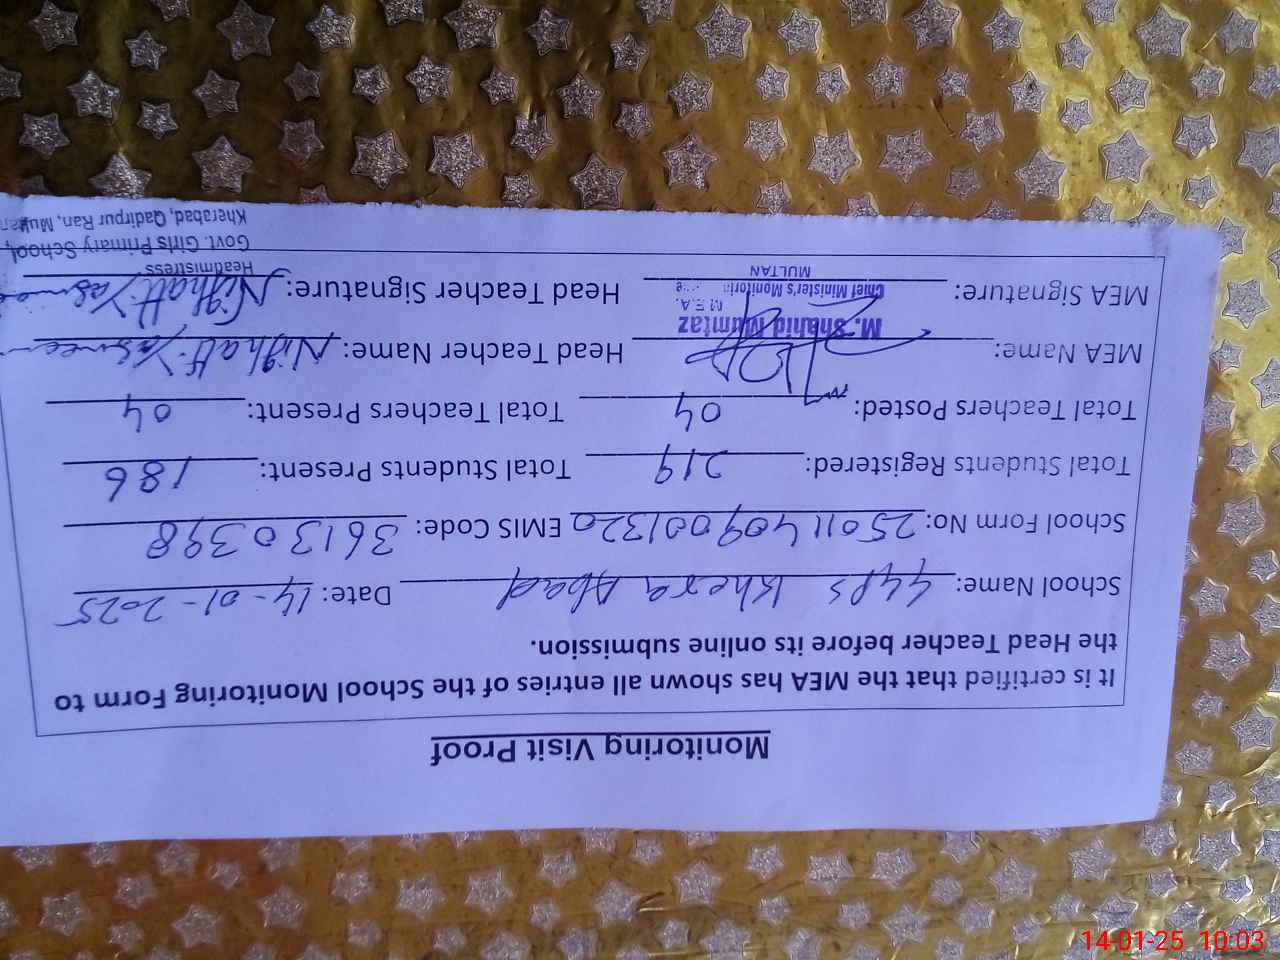 Monitoring Visit Proof
It is certified that the MEA has shown all entries of the School Monitoring Form to
the Head Teacher before its online submission.
School Name: GGPS Khera Abad Date: 14-01-2025
School Form No: 250114090001320 EMIS Code: 36130398
Total Students Registered: 219 Total Students Present: 186
Total Teachers Posted: 04 Total Teachers Present: 04
MEA Name: Head Teacher Name: Nighatt Yasmeen
M. Shahid Mumtaz
M.E.A.
Chief Minister's
MEA Signature: Head Teacher Signature: Nighatt Yasmeen
MULTAN
Headmistress
Govt. Girls Primary School,
Kherabad, Qadirpur Ran, Multan
14-01-25 10:03